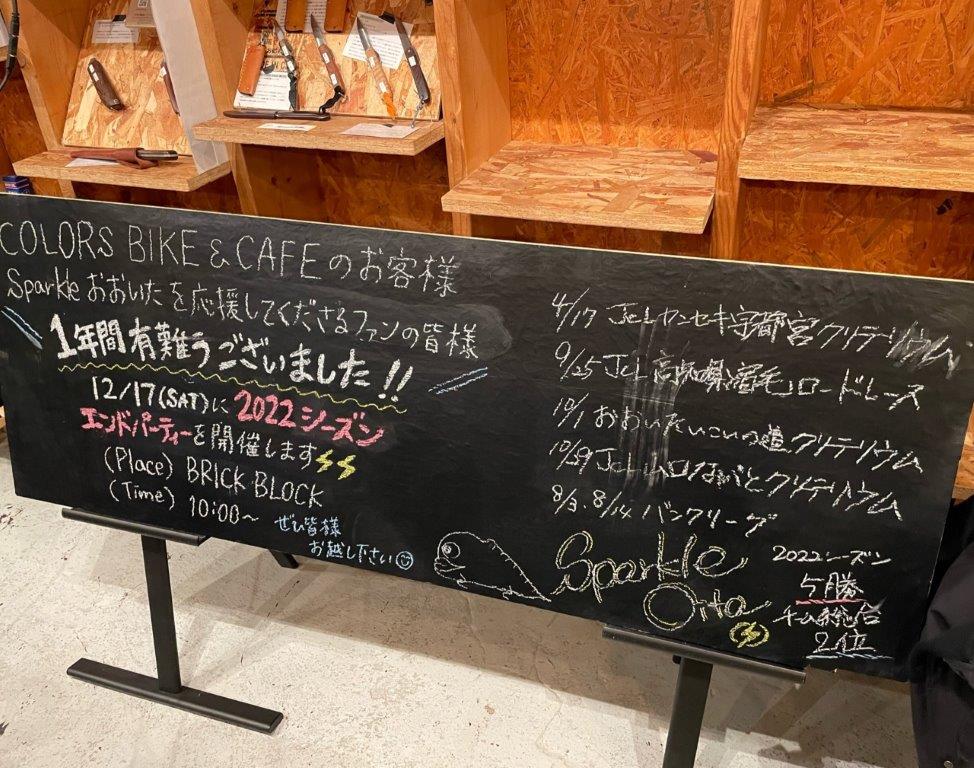 COLORS BIKE & CAFEのお客様
Sparkleおおいたを応援してくださるファンの皆様
1年間有難うございました!!
12/17(SAT)に2022シーズン
エンドパーティーを開催します
(Place) BRICK BLOCK
(Time) 10:00~
ぜひ皆様
お越し下さい
4/17 Jcl カンセキ宇都宮クリテリウム
9/25 Jcl 高知県宿毛ロードレース
10/1 おおいたいこいの道クリテリウム
10/29 Jcl 山口ながとクリテリウム
8/3.8/14 バンクリーグ
Sparkle
Oita
2022シーズン
5勝
チーム総合
2位